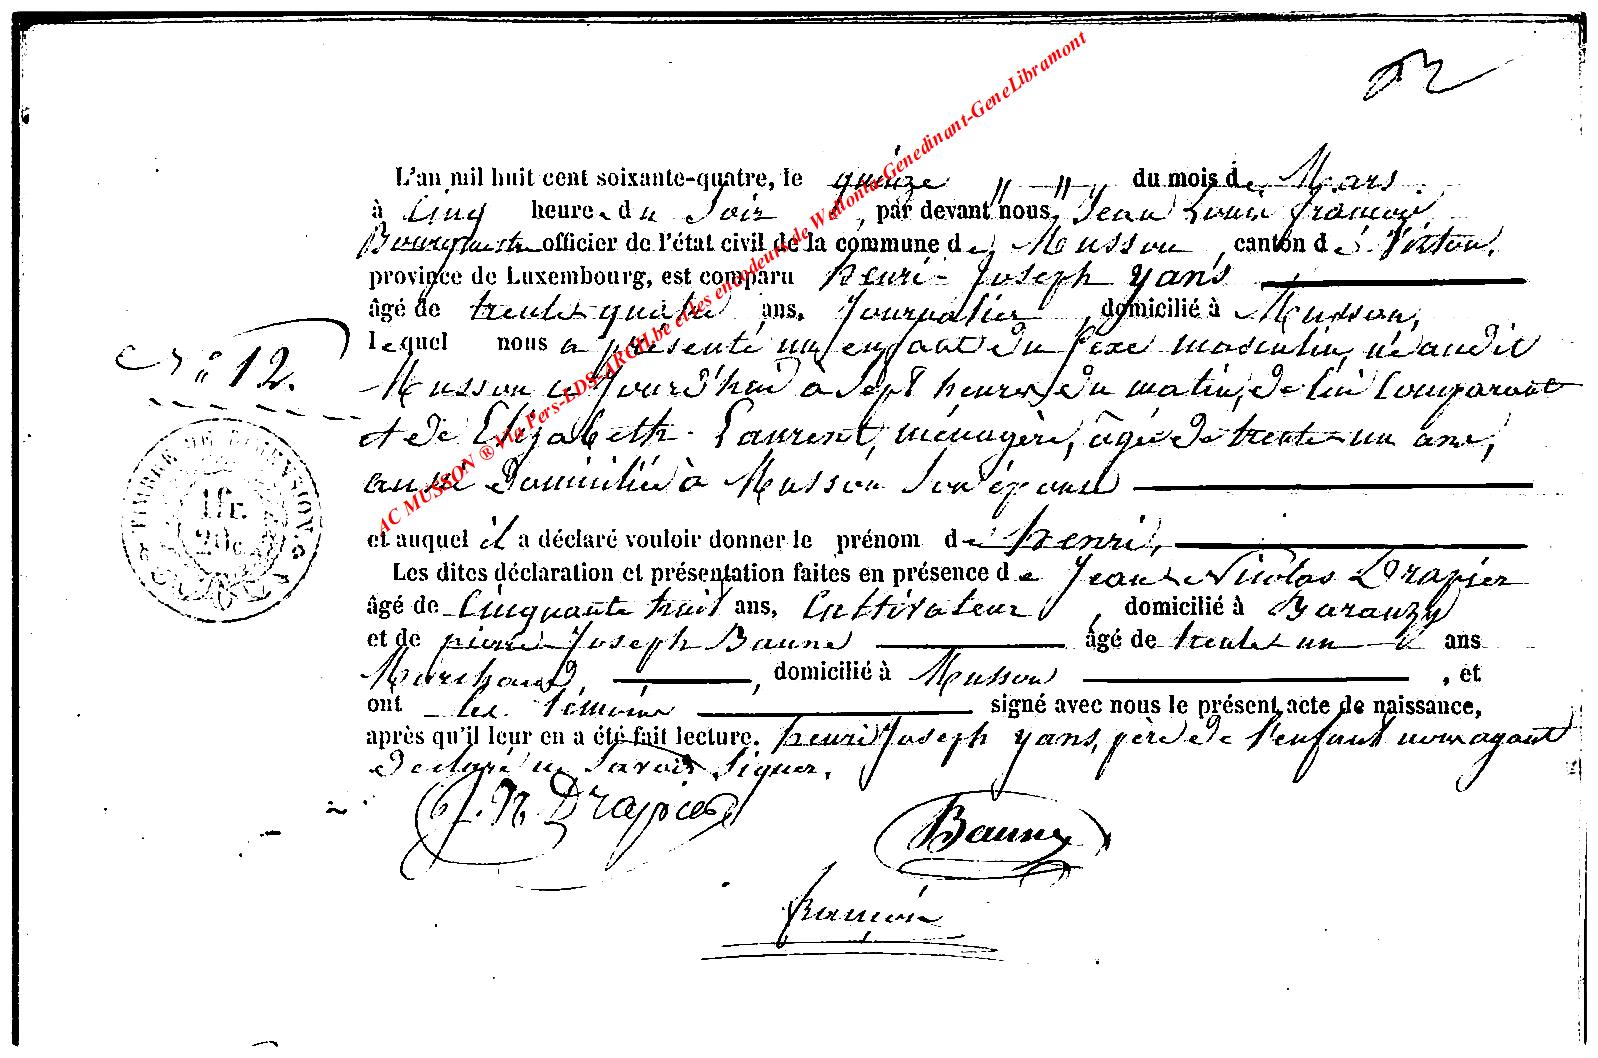 L'an mil huit cent soixante-quatre, le quinze „ — „ du mois de Mars.
à Cinq heures du Soir, par devant nous, Jean Louis françois
Bourgmestre officier de l'état civil de la commune de Musson, canton de Virton,
province de Luxembourg, est comparu henri-Joseph yans
âgé de trente quatre ans, Journalier, domicilié à Musson,
lequel nous a présenté un enfant du sexe masculin, né audit
N° 12.
Musson ce Jourd'hui à sept heures du matin, de lui Comparant
et de Elizabeth Laurent, ménagère, âgée de trente un ans,
aussi Domiciliée à Musson Son épouse
TIMBRE DE DIMENSION.
1fr.
20c.
et auquel il a déclaré vouloir donner le prénom de henri,
Les dites déclaration et présentation faites en présence de Jean Nicolas Drapier
âgé de Cinquante huit ans, Cultivateur, domicilié à Baranzy
et de pierre Joseph Baune âgé de trente un ans
Marchand, domicilié à Musson, et
ont les témoins signé avec nous le présent acte de naissance,
après qu'il leur en a été fait lecture. henri Joseph yans, père de l'enfant nouvagant
déclaré ne Savoir Signer.
J. N. Drapier
Baune
françois
AC MUSSON ® Via Pers-EDS-ARCH.be et les encodeurs de Wallonia-Genedinant-GeneLibramont